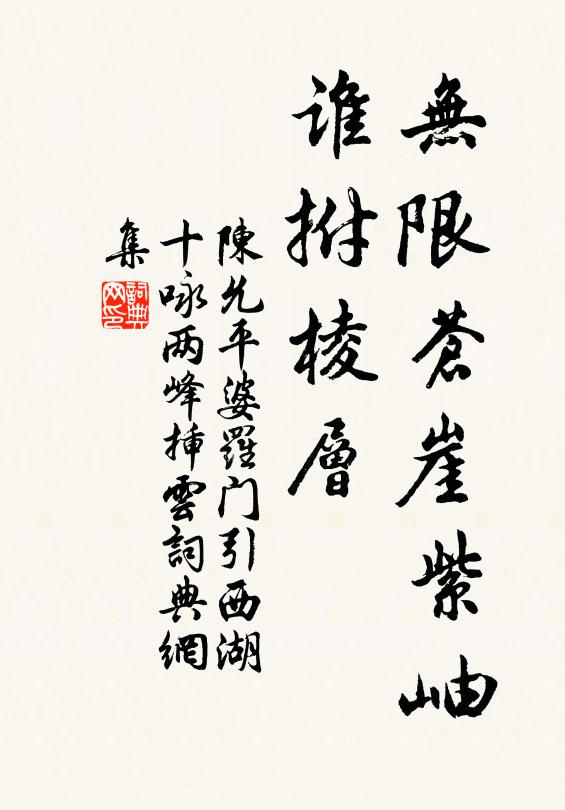 無限蒼崖紫岫
誰拊棱層
陳允平婆羅门引西湖
十咏两峰揷雲詞典網
集
詞典
网印